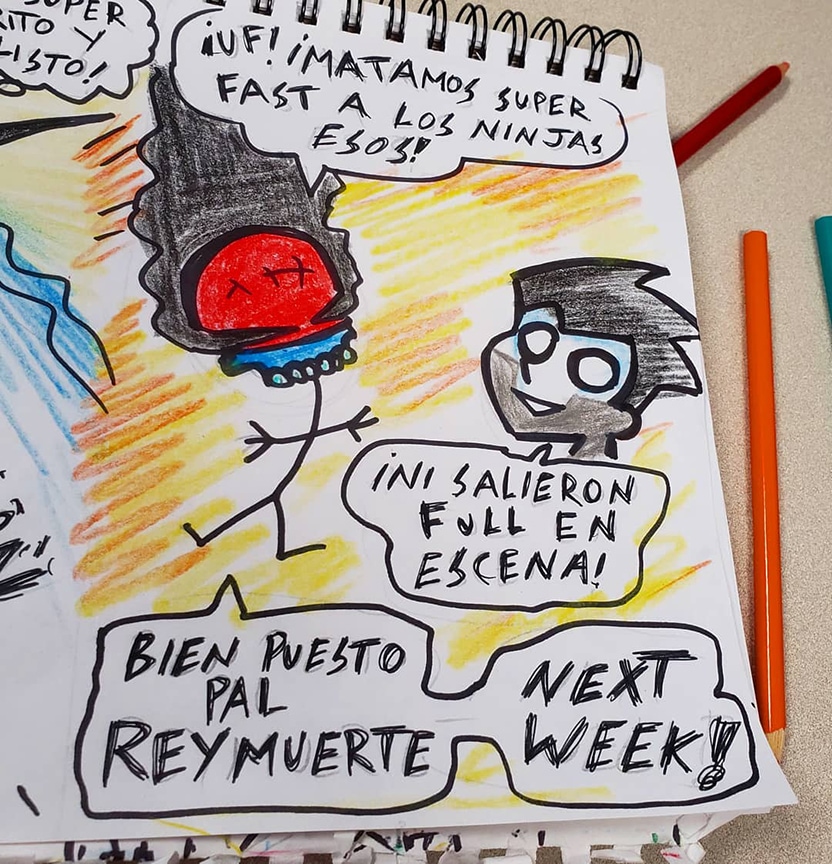 SUPER
RITO Y
LISTO!
¡UF! ¡MATAMOS SUPER
FAST A LOS NINJAS
ESOS!
¡NI SALIERON
FULL EN
ESCENA!
BIEN PUESTO
PAL
REYMUERTE
NEXT
WEEK!